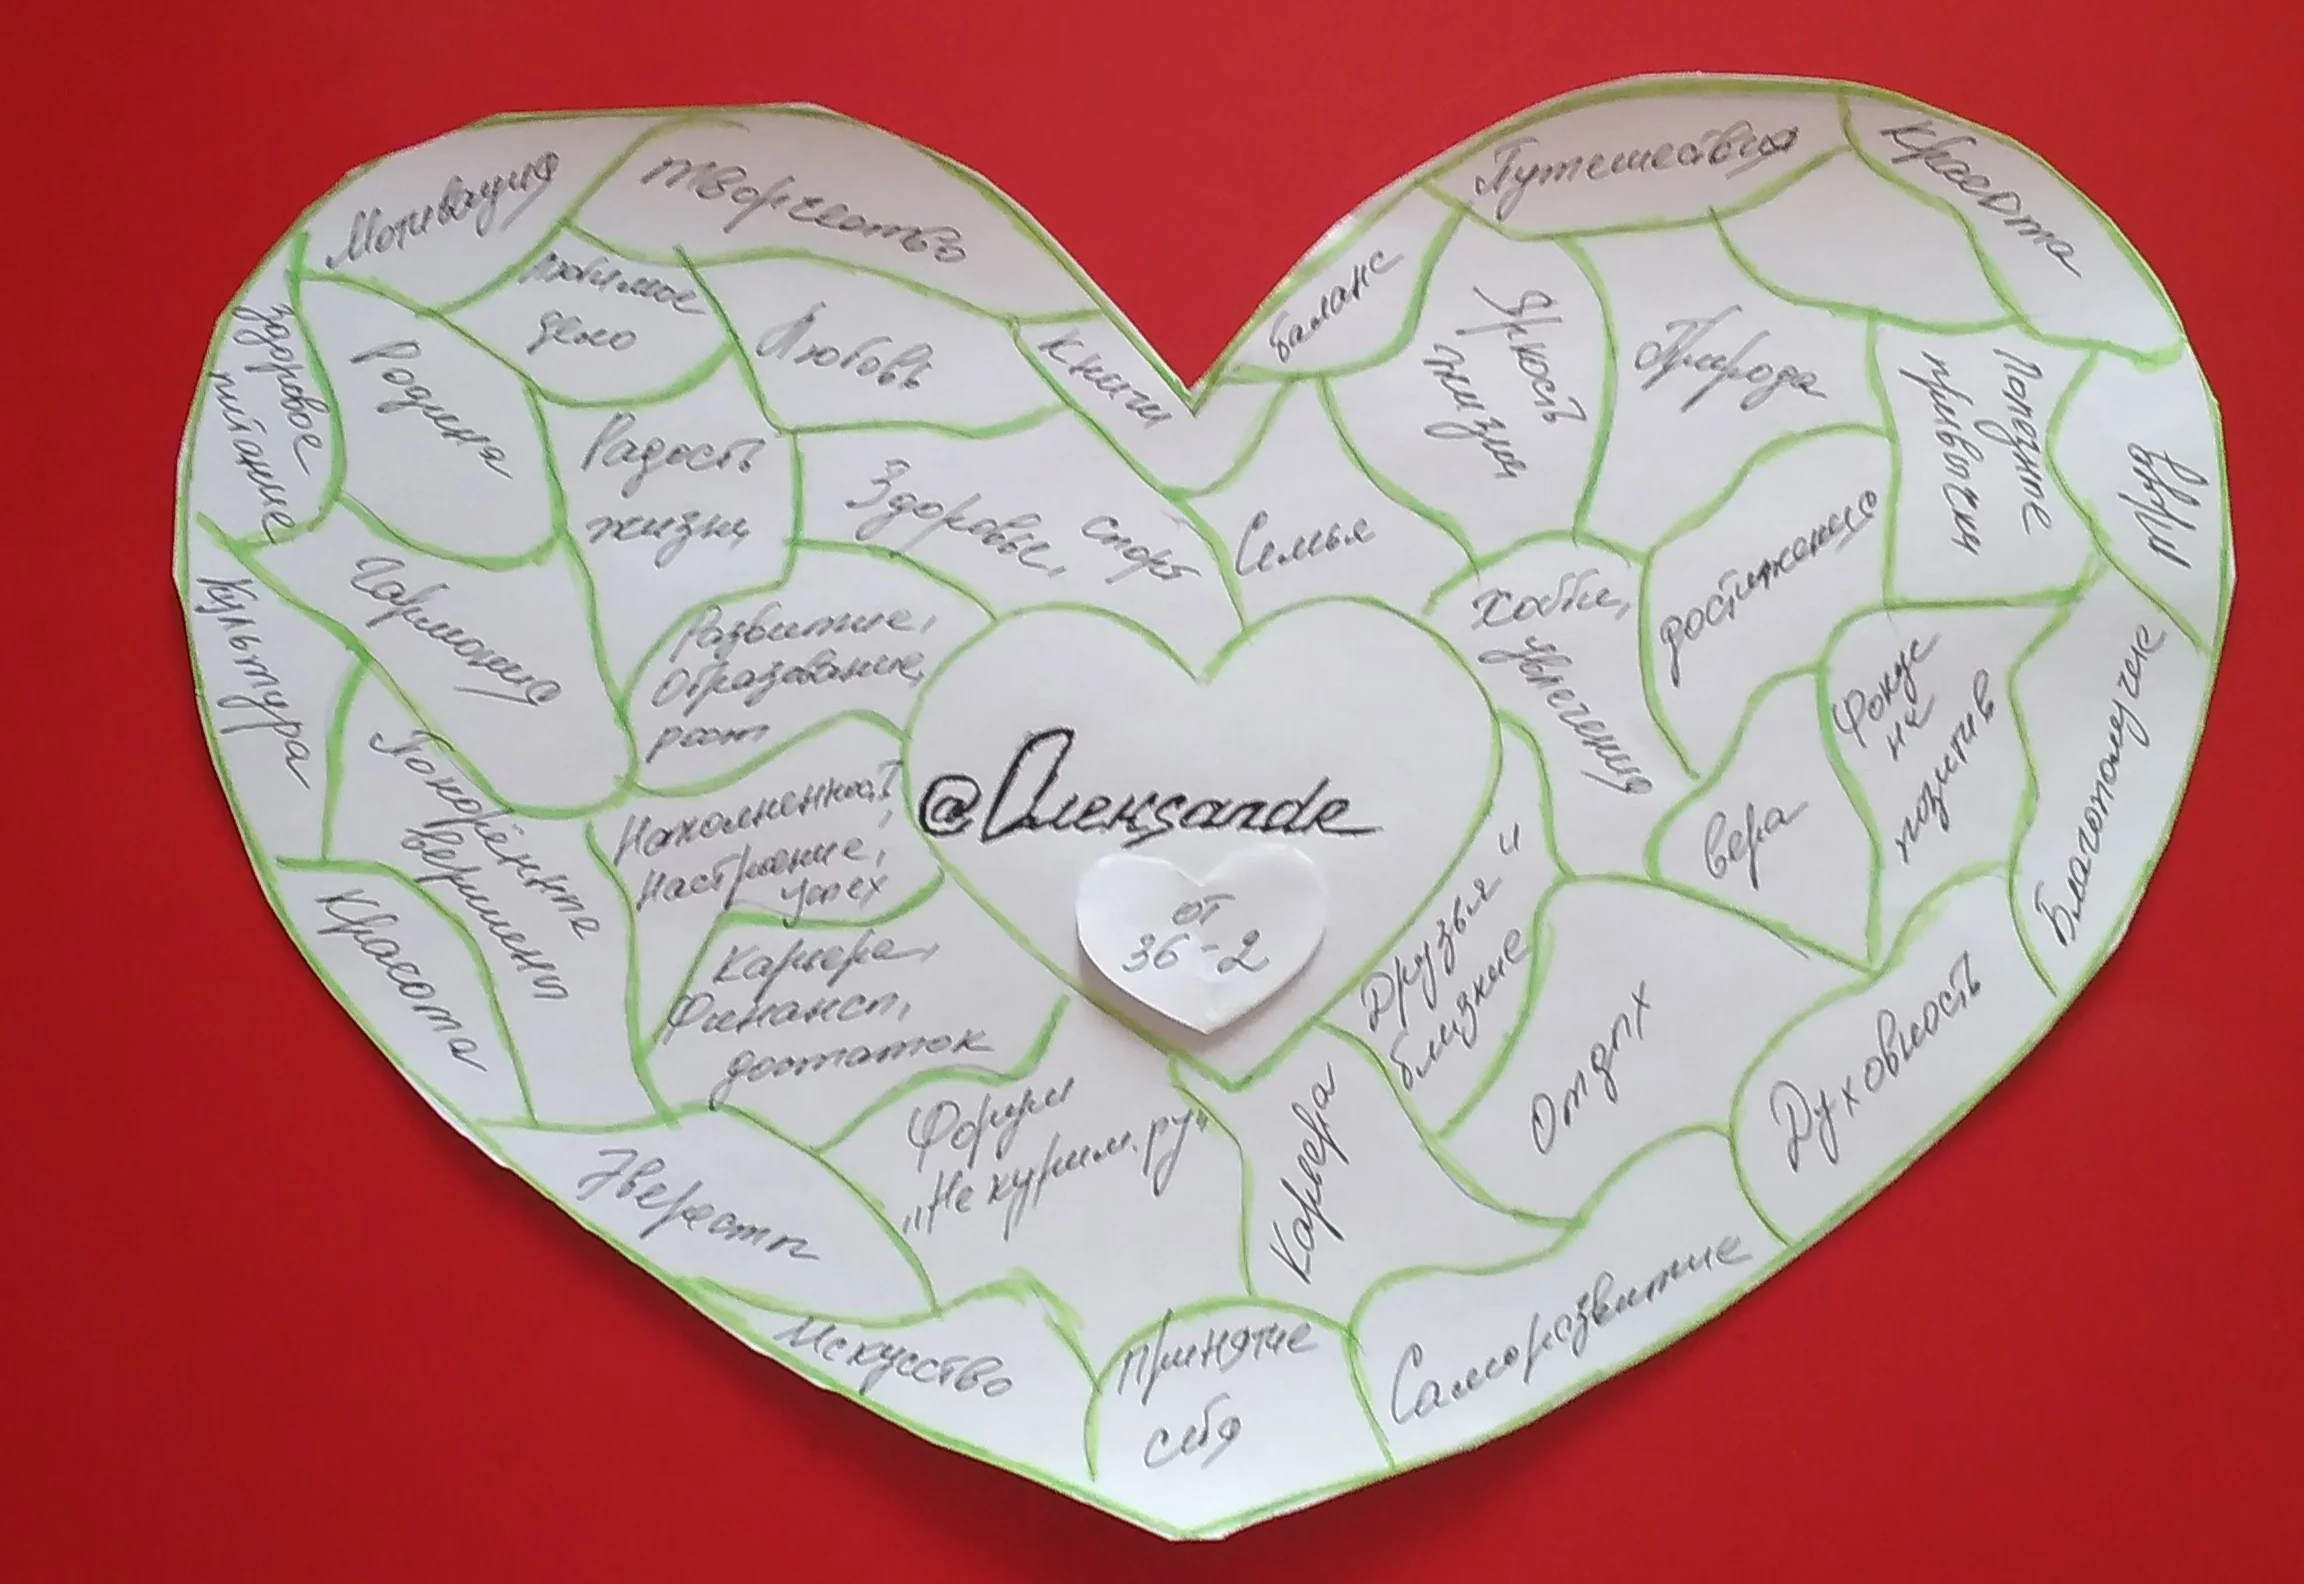 Мотивация
творчество
любимое
дело
Любовь
Книги
здоровое
питание
Родина
Радость
жизни
Здоровье, спорт
Гармония
Развитие,
Образование,
рост
Культура
Покорённые
вершины
Наполненность,
Настроение,
успех
Карьера,
Финансы,
достаток
Красота
Эвересты
Форум
„Не курим.ру"
Искусство
Принятие
себя
@Олекsandr
от
36-2
Путешествия
Красота
баланс
Яркость
жизни
Природа
Полезные
привычки
Семья
Хобби,
увлечения
достижения
вера
Фокус
на
позитив
Благополучие
Друзья и
близкие
Отдых
Духовность
Карьера
Саморазвитие